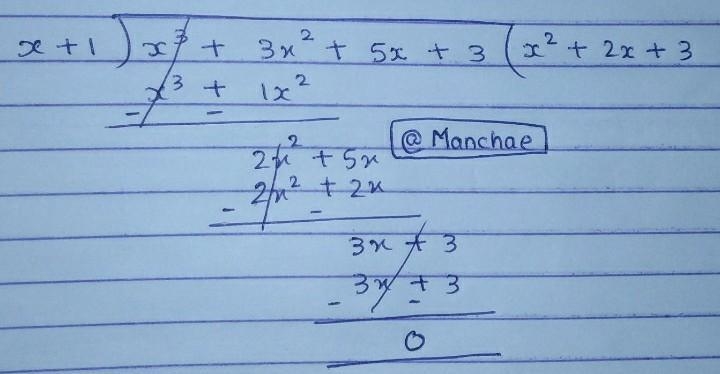 x + 1 ) x³ + 3x² + 5x + 3 ( x² + 2x + 3
x³ + 1x²
- -
@ Manchae
2x² + 5x
2x² + 2x
- -
3x + 3
3x + 3
- -
0